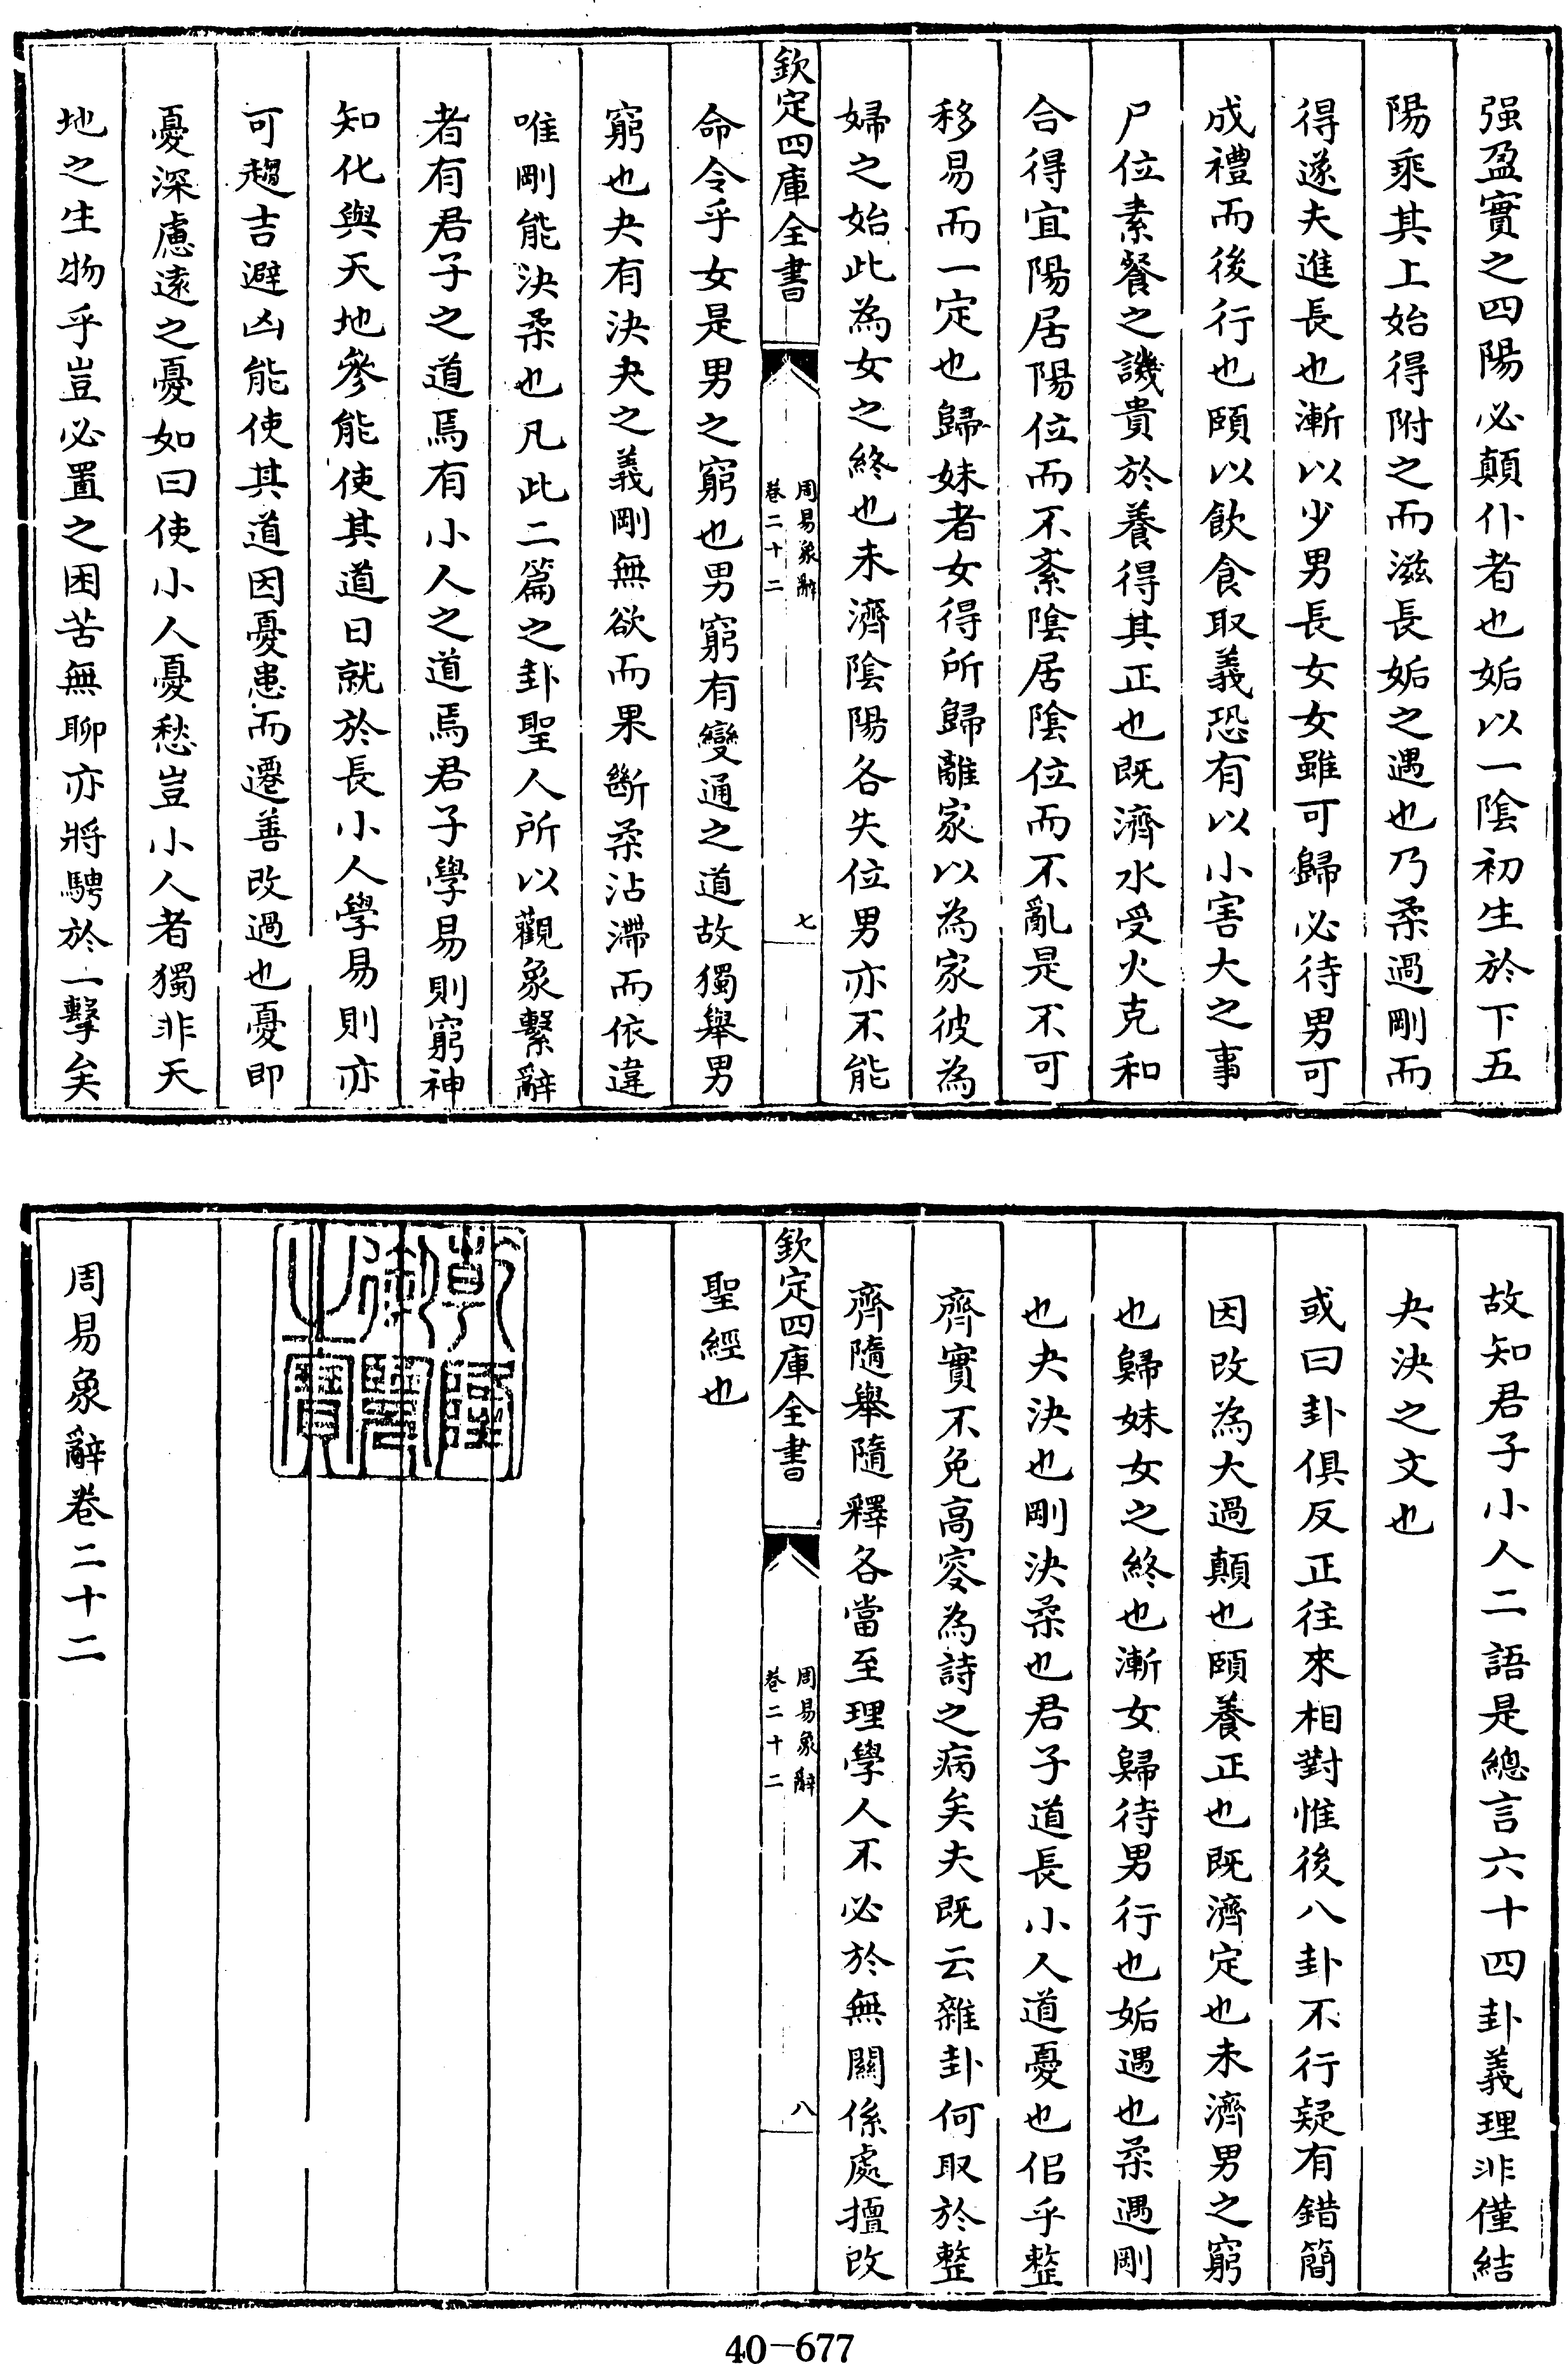 强盈實之四陽必顛仆者也姤以一陰初生於下五
陽乘其上始得附之而滋長姤之遇也乃柔遇剛而
得遂夫進長也漸以少男長女女雖可歸必待男可
成禮而後行也頤以飲食取義恐有以小害大之事
尸位素餐之譏貴於養得其正也既濟水受火克和
合得宜陽居陽位而不紊陰居陰位而不亂是不可
移易而一定也歸妹者女得所歸離家以為家彼為
婦之始此為女之終也未濟陰陽各失位男亦不能
欽定四庫全書
周易象辭
卷二十二
七
命令乎女是男之窮也男窮有變通之道故獨舉男
窮也夬有決夬之義剛無欲而果斷柔沾滯而依違
唯剛能決柔也凡此二篇之卦聖人所以觀象繫辭
者有君子之道焉有小人之道焉君子學易則窮神
知化與天地參能使其道日就於長小人學易則亦
可趨吉避凶能使其道因憂患而遷善改過也憂即
憂深慮遠之憂如曰使小人憂愁豈小人者獨非天
地之生物乎豈必置之困苦無聊亦將騁於一擊矣
故知君子小人二語是總言六十四卦義理非僅結
夬決之文也
或曰卦俱反正往來相對惟後八卦不行疑有錯簡
因改為大過顛也頤養正也既濟定也未濟男之窮
也歸妹女之終也漸女歸待男行也姤遇也柔遇剛
也夬決也剛決柔也君子道長小人道憂也佀乎整
齊實不免高叜為詩之病矣夫既云雜卦何取於整
齊隨舉隨釋各當至理學人不必於無關係處擅改
欽定四庫全書
周易象辭
卷二十二
八
聖經也
乾隆御覽之寶
周易象辭卷二十二
40-677